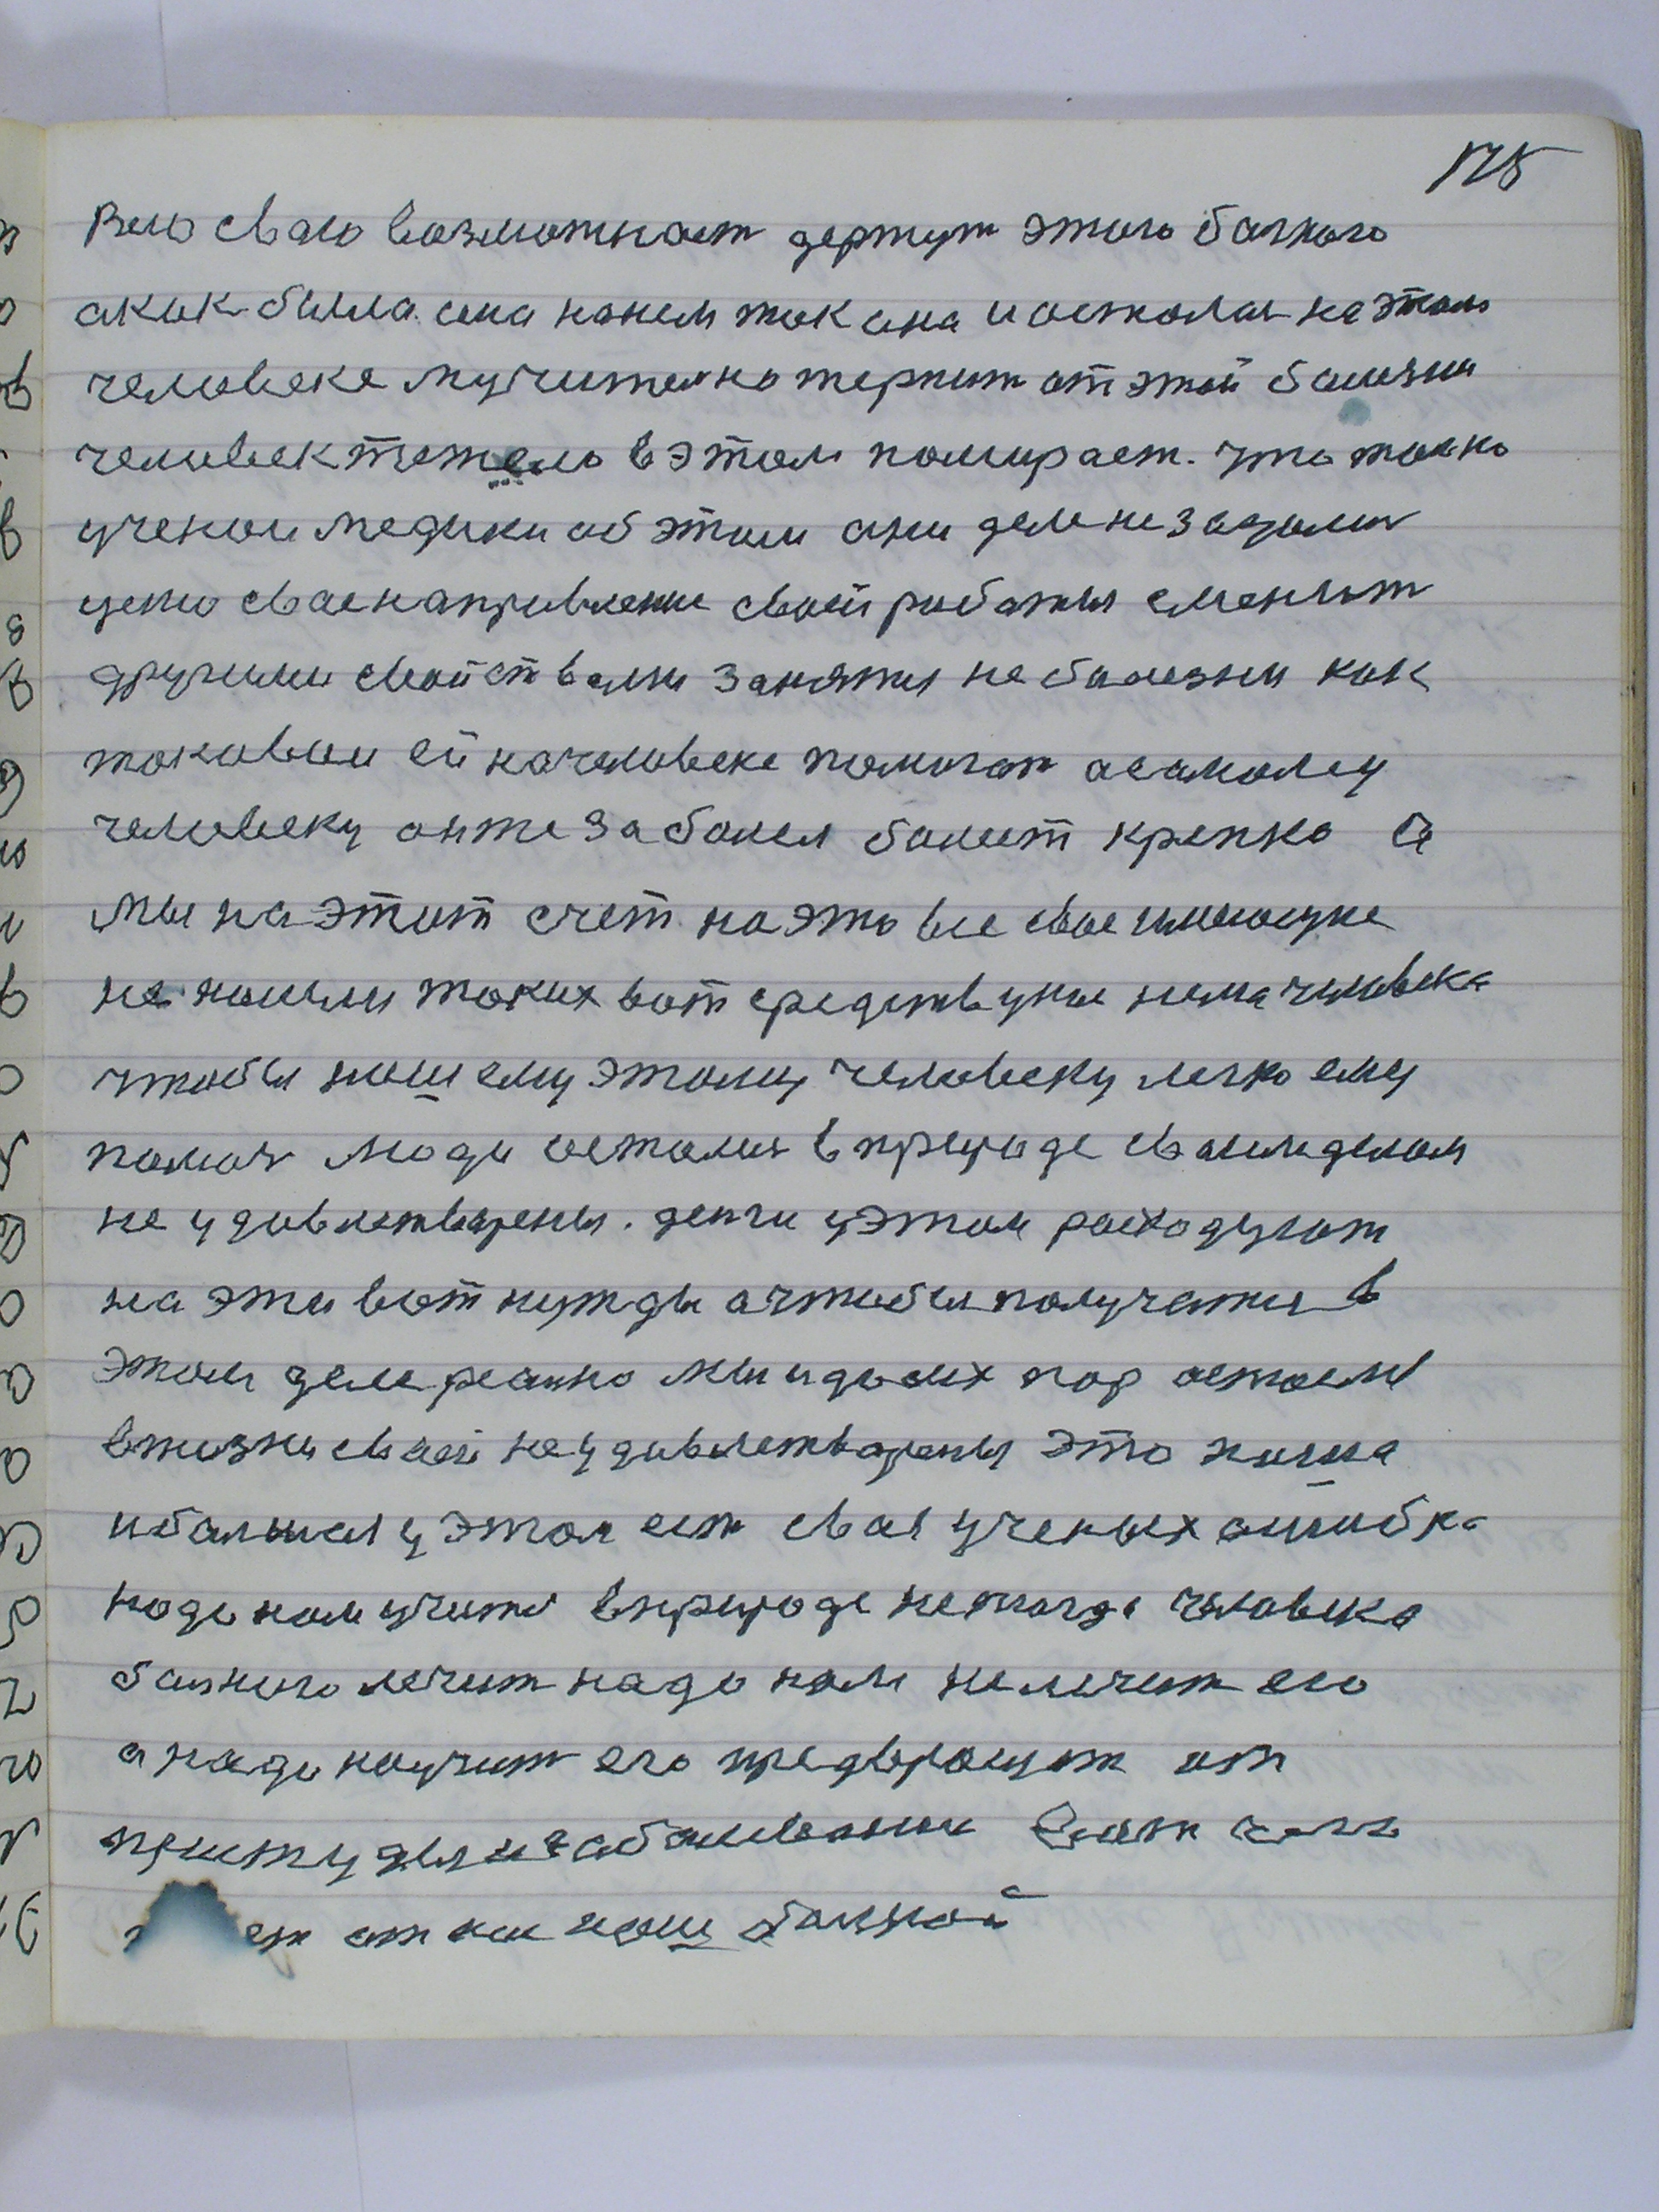 175
Всю сваю возможност держут этого балного
а как была она на нем так она и осталас на этом
человеке мучително терпит от этой болезни
человек тяжело в этом помирает. Что толко
ученои медики об этом они дел не задалис
цели свае направление своей работы сменит
другими свойствами занятия не болезни как
таковыи ей на человеке помогат а самому
человеку он же заболел болеет крепко А
мы на этот счет на это все свое
не нашли таких вот средств у нас нема человека
чтобы нашему этому человеку легко ему
помоч люди осталис в природе сваим делом
не удавлетварены. денги у этом расходуют
на эти вот нужды а чтобы получатся в
этом деле реално мы и до сих пор остаемс
в жизни сваей не удавлетварены это наша
и балшая у этом ест свая ученых ошибка
надо нам учится в природе не тогда человека
балного лечит надо нам не лечит его
а надо научит его предвращат от
заболевании
от ни наш балной